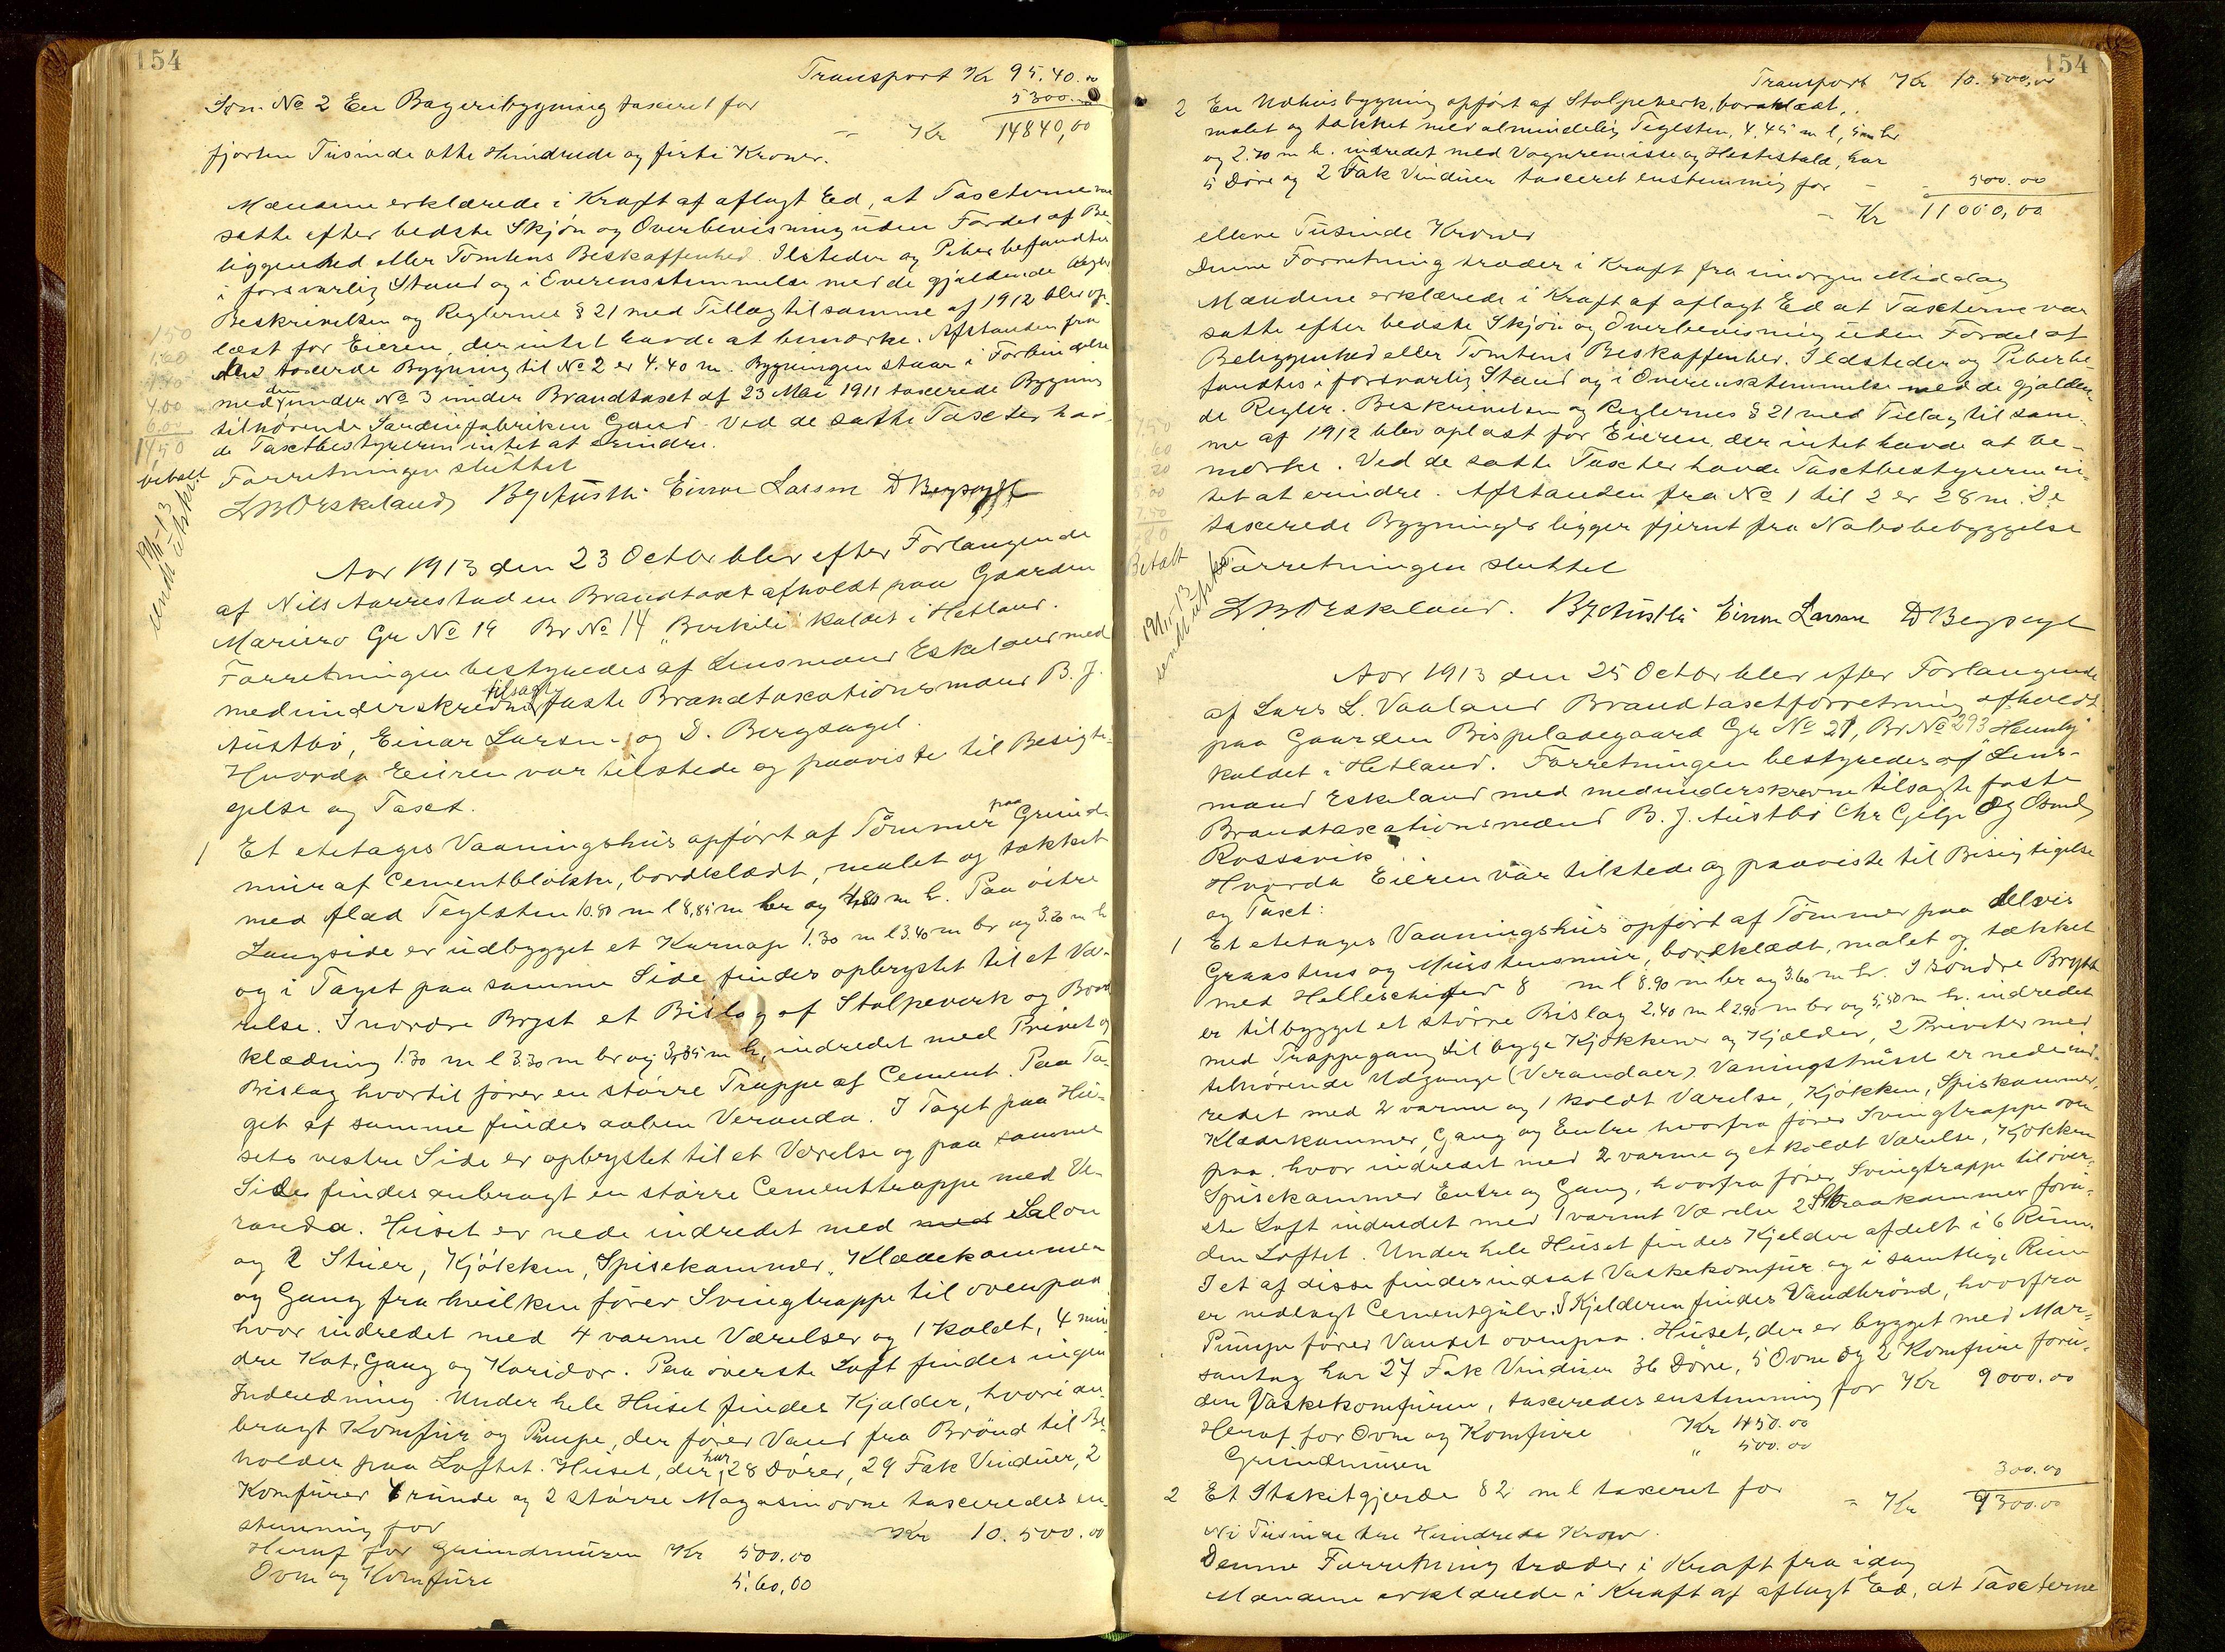 154
Transport Kr 95.40.00
Som No 2 En Bageribygning taxeret for 5300.00
" Kr 14840,00
fjorten Tusinde otte Hundrede og firti Kroner.
Mændene erklærede i Kraft af aflagt Ed, at Taxterne var
satte efter bedste Skjön og Overbevisning uden Fordel af Be-
liggenhed eller Tomtens Beskaffenhed. Ilsteder og Piber befandtes
i forsvarlig Stand og i Overensstemmelse med de gjældende Regler
Beskrivelsen og Reglernes § 21 med Tillæg til samme af 1912 blev op-
læst for Eieren, der intet havde at bemærke. Afstanden fra
den taxerede Bygning til No 2 er 4.40 m. Bygningen staar i Forbindelse
med den under No 3 under Brandtaxt af 23 Mai 1911 taxerede Bygning
tilhörende Sardinfabriken Gand. Ved de satte Taxter hav-
de Taxtbestyreren intet at erindre.
Forretningen sluttet
LBOrskeland BJAustbö Einar Larsen D Bergsagel
150
1,60
4.00
6,00
1450
betalt
19/11-13
sendt utskr.
Aar 1913 den 23 Octbr blev efter Forlangende
af Nils Aarrestad en Brandtaxt afholdt paa Gaarden
Mariero Gr No 19 Br No 14 "Birkili" kaldet i Hetland.
Forretningen bestyredes af Lensmand Eskeland med
medunderskrevne tilsagte faste Brandtaxationsmænd B. J.
Austbö, Einar Larsen og D. Bergsagel.
Hvorda Eieren var tilstede og paaviste til Besigti-
gelse og Taxt.
1 Et etetages Vaaningshus opfört af Tömmer paa Grund-
mur af Cementblokke, bordklædt, malet og tækket
med flad Teglsten 10.90 m l 8,85 m br og 4,80 m h. Paa östre
Langside er udbygget et Karnap 1.30 m l 3.40 m br og 3.20 m h
og i Taget paa samme Side findes opbrystet til et Væ-
relse. I nordre Bryst et Bislag af Stolpeverk og Bord
klædning 1.30 m l 3.30 m br og 3,35 m h, indredet med Privet og
Bislag hvortil förer en större Trappe af Cement. Paa Ta-
get af samme findes aaben Veranda. I Taget paa Hu-
sets vestre Side er opbrystet til et Værelse og paa samme
Side findes anbragt en större Cementtrappe med Ve-
randa. Huset er nede indredet med med Salon
og 2 Stuer, Kjökken, Spisekammer, Klædekammer
og Gang fra hvilken förer Svingtrappe til ovenpaa
hvor indredet med 4 varme Værelser og 1 koldt, 4 min-
dre Kot, Gang og Koridor. Paa överste Loft findes ingen
Inderedning. Under hele Huset findes Kjælder, hvori an-
bragt Komfur og Pumpe, der förer Vand fra Brönd til Be-
holder paa Loftet. Huset, der har 28 Dörer, 29 Fak Vinduer, 2
Komfurer 4 runde og 2 större Magasinovne taxeredes en-
stemmig for Kr 10.500.00
Heraf for Grundmuren Kr 500.00
Ovne og Komfure 5.60,00
154
Transport Kr 10.500,00
2 En Udhusbygning opfört af Stolpeverk, bordklædt,
malet og tækket med almindelig Teglsten, 4.45 m l, 5 m br
og 2.70 m h. indredet med Vognremisse og Hestestald, har
5 Döre og 2 Fak Vinduer taxeret enstemmig for " 500.00
" Kr 11000,00
elleve Tusinde Kroner
Denne Forretning træder i Kraft fra imorgen Middag
Mændene erklærede i Kraft af aflagt Ed at Taxterne var
satte efter bedste Skjön og Overbevisning uden Fordel af
Beliggenhed eller Tomtens Beskaffenhed. Ildsteder og Piber be-
fandtes i forsvarlig Stand og i Overensstemmelse med de gjælden-
de Regler. Beskrivelsen og Reglernes § 21 med Tillæg til sam-
me af 1912 blev oplæst for Eieren, der intet havde at be-
mærke. Ved de satte Taxter havde Taxtbestyreren in-
tet at erindre. Afstanden fra No 1 til 2 er 28 m. De
taxerede Bygninger ligger fjernt fra Nabobebyggelse
Forretningen sluttet
Betalt
19/11-13
sendt utskr.
LBOrskeland. BJAustbö Einar Larsen D Bergsagel
Aar 1913 den 25 Octbr blev efter Forlangende
af Lars L. Vaaland Brandtaxtforretning afholdt
paa Gaarden Bispeladegaard Gr No 21, Br No 293 "Heimly"
kaldet i Hetland. Forretningen bestyredes af Lens-
mand Eskeland med medunderskrevne tilsagte faste
Brandtaxationsmænd B. J. Austbö Chr Gilje og Osmund
Rossavik
Hvorda Eieren var tilstede og paaviste til Besigtigelse
og Taxt:
1 Et etetages Vaaningshus opfört af Tömmer paa delvis
Graastens og Murstensmur, bordklædt, malet og tækket
med Helleschifer 8 m l 8.90 m br og 3.60 m h. I söndre Bryst
er tilbygget et större Bislag 2,40 m l 2,90 m br og 5,50 m h. indredet
med Trappegang til begge Kjökkener og Kjælder, 2 Priveter med
tilhörende Udgange (Verandaer) Vaningshuset er nede ind-
redet med 2 varme og 1 koldt Værelse, Kjökken, Spiskammer,
Klædekammer, Gang og Entre hvorfra förer Svingtrappe oven
paa. hvor indredet med 2 varme og et koldt Værelse, Kjökken
Spisekammer Entre og Gang, hvorfra förer Svingtrappe til över-
ste Loft indredet med 1 varmt Værelse 2 Skraakammer foru-
den Loftet. Under hele Huset findes Kjelder afdelt i 6 Rum.
I et af disse findes indsat Vaskekomfur og i samtlige Rum
er nedlagt Cementgulv. I Kjelderen findes Vandbrönd, hvorfra
Pumpe förer Vandet ovenpaa. Huset, der er bygget med Mar-
santag har 27 Fak Vinduer 36 Döre, 5 Ovne og 2 Komfure foru-
den Vaskekomfuren, taxeredes enstemmig for Kr 9000.00
Heraf for Ovne og Komfure Kr 450.00
Grundmuren " 500.00
2 Et Stakitgjerde 82 m l taxeret for 300.00
" Kr 9300.00
Ni Tusinde tre Hundrede Kroner.
Denne Forretning træder i Kraft fra idag
Mændene erklærede i Kraft af aflagt Ed, at Taxterne